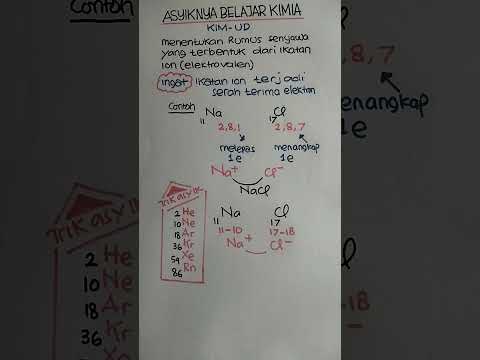 ASYIKNYA BELAJAR KIMIA
KIM-UD
menentukan Rumus senyawa
yang terbentuk dari ikatan
ion (elektrovalen)
ingat Ikatan ion terjadi
serah terima elektron
Contoh
11 Na 17 Cl
2,8,1 2,8,7
melepas menangkap
1e 1e
Na+ Cl-
NaCl
TRIK ASYIK
2 He
10 Ne
18 Ar
36 Kr
54 Xe
86 Rn
11 Na 17 Cl
11-10 17-18
Na+ Cl-
Contoh
2 He
10 Ne
18 Ar
36 Kr
Xe
,8,7
menangkap
1e
-18